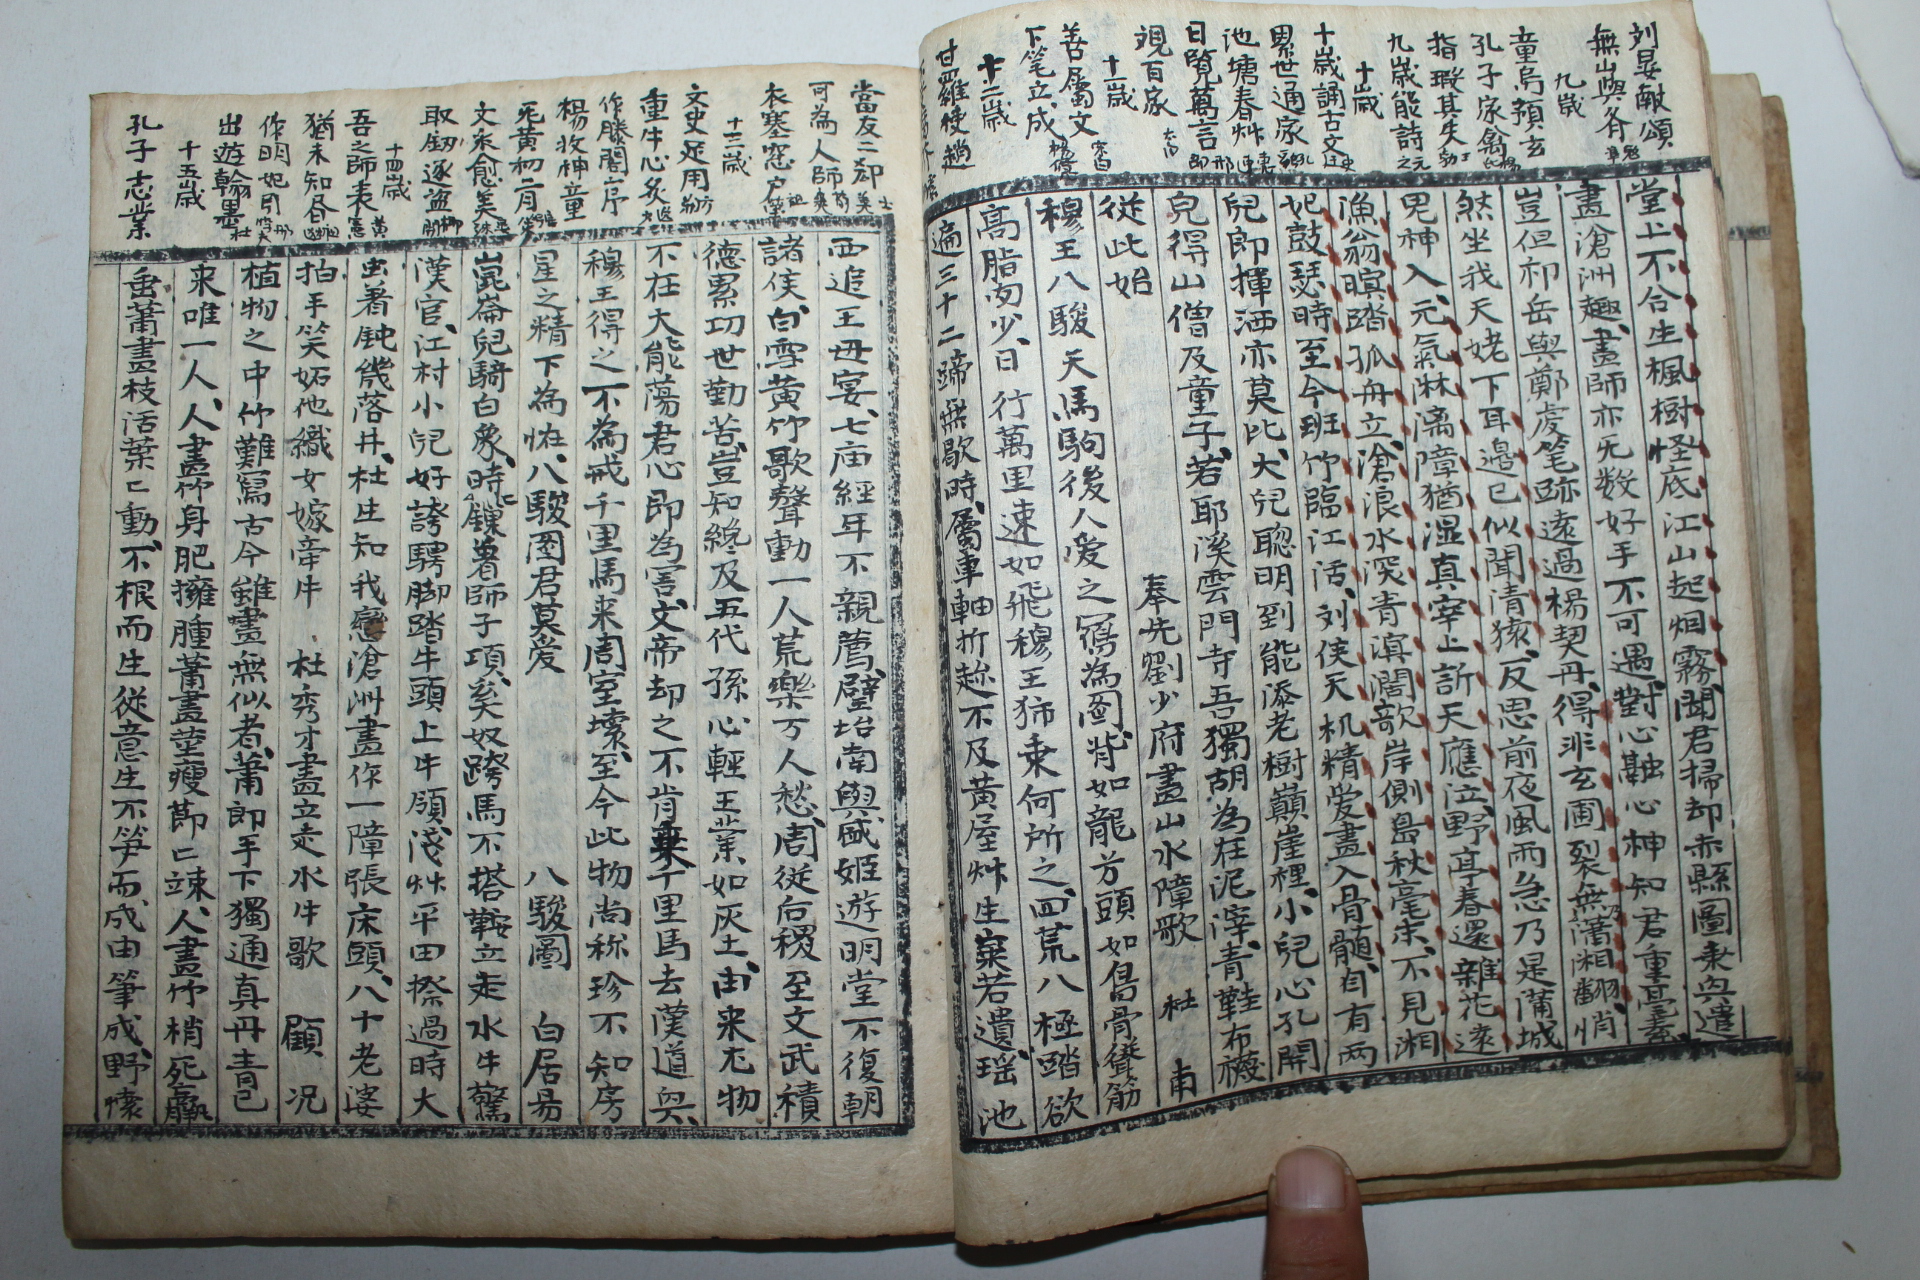 刘晏献頌
無山與斧
九歲
童烏預玄
孔子家禽
指瑕其失
九歲能詩 元之
十歲
十歲誦古文
累世通家
池塘春艸
日覽萬言
覌百家
十一歲
善属文
下笔立成
十二歲
甘羅使趙
堂上不合生楓樹怪底江山起烟霧聞君掃却赤縣圖乘興遣
畫滄洲趣畫師亦无数好手不可遇對心融心神知君重毫素
豈但祁岳與鄭虔笔跡遠過楊契丹得非玄圃裂無乃瀟湘翻悄
然坐我天姥下耳邊已似聞清猿反思前夜風雨急乃是蒲城
鬼神入元氣淋漓障猶湿真宰上訴天應泣野亭春還雜花遠
漁翁暝踏孤舟立滄浪水深青溟濶欹岸側島秋毫末不見湘
妃鼓瑟時至今班竹臨江活刘侯天机精愛畫入骨髓自有两
兒郎揮洒亦莫比大兒聰明到能添老樹巔崖裡小兒心孔開
皃得山僧及童子若耶溪雲門寺吾獨胡為在泥滓青鞋布襪
従此始 奉先劉少府畫山水障歌 杜 甫
穆王八駿天馬駒後人愛之寫為圖背如龍方頭如舃骨聳筋
高脂肉少日行萬里速如飛穆王獨乗何所之四荒八極踏欲
遍三十二蹄無歇時属車軸折趂不及黃屋艸生棄若遺瑶池
當友二郄
可為人師
衣塞窓户 祖瑩
十三歲
文史足用
重牛心炙
作滕閣序
楊牧神童
死黃初二月
文采愈美
取劒逐盜
十四歲
吾之師表 黃憲
猶未知昏
作明妃引
出遊翰墨 杜
十五歲
孔子志業
西追王母宴七庙経年不親薦璧坮南與盛姬遊明堂不復朝
諸侯白雪黄竹歌聲動一人荒樂万人愁周従后稷至文武積
德累功世勤苦豈知纔及五代孫心輕王業如灰土由来尤物
不在大能蕩君心即為害文帝却之不肯乗千里馬去漢道興
穆王得之不為戒千里馬来周室壊至今此物尚称珍不知房
星之精下為恠八駿圖君莫爱 八駿圖 白居昜
崑崙兒騎白象時七鏁着師子項奚奴跨馬不搭鞍立走水牛驚
漢官江村小兒好誇騁脚踏牛頭上牛領淺艸平田擦過時大
虫着鈍幾落井杜生知我戀滄洲畫作一障張床頭八十老婆
拍手笑妬他織女嫁牽牛 杜秀才畫立走水牛歌 顧 况
植物之中竹難寫古今雖畫無似者蕭郎手下獨通真丹青已
来唯一人人畫竹身肥擁腫蕭畫莖瘦節匕竦人畫竹梢死羸
垂蕭畫枝活葉匕動不根而生従意生不笋而成由筆成野懐